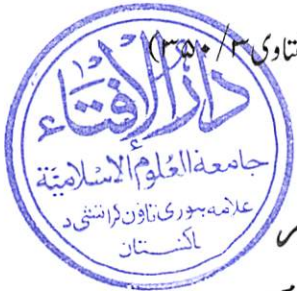 فتاوی ۳/۳۵۰)
دار الافتاء
جامعة العلوم الاسلامية
علامہ بنوری ٹاؤن کراتشی ۵
پاکستان